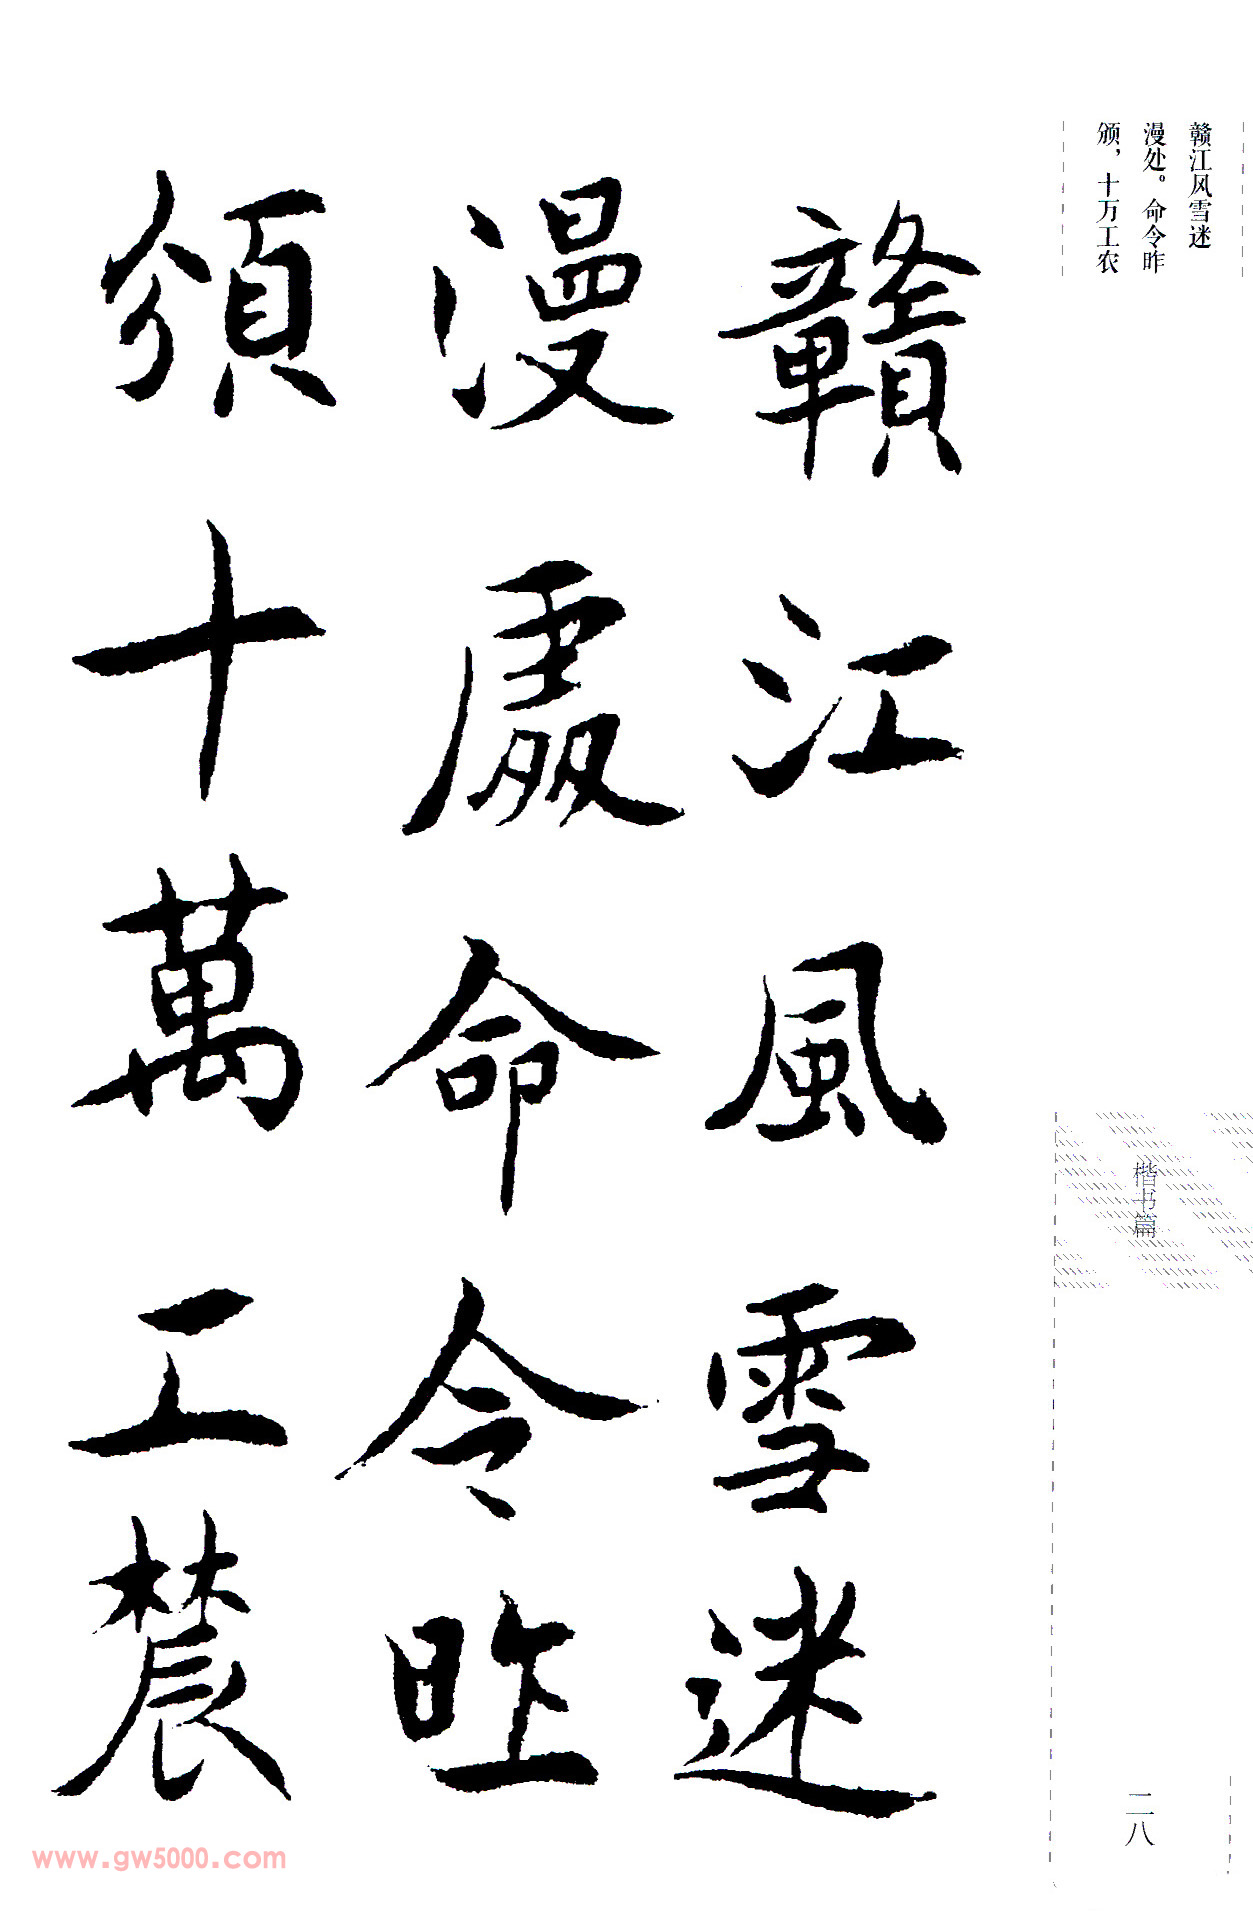 赣江风雪迷
漫处。命令昨
颁，十万工农
贛江風雪迷
漫處命令昨
頒十萬工農
楷书篇
二八
www.gw5000.com